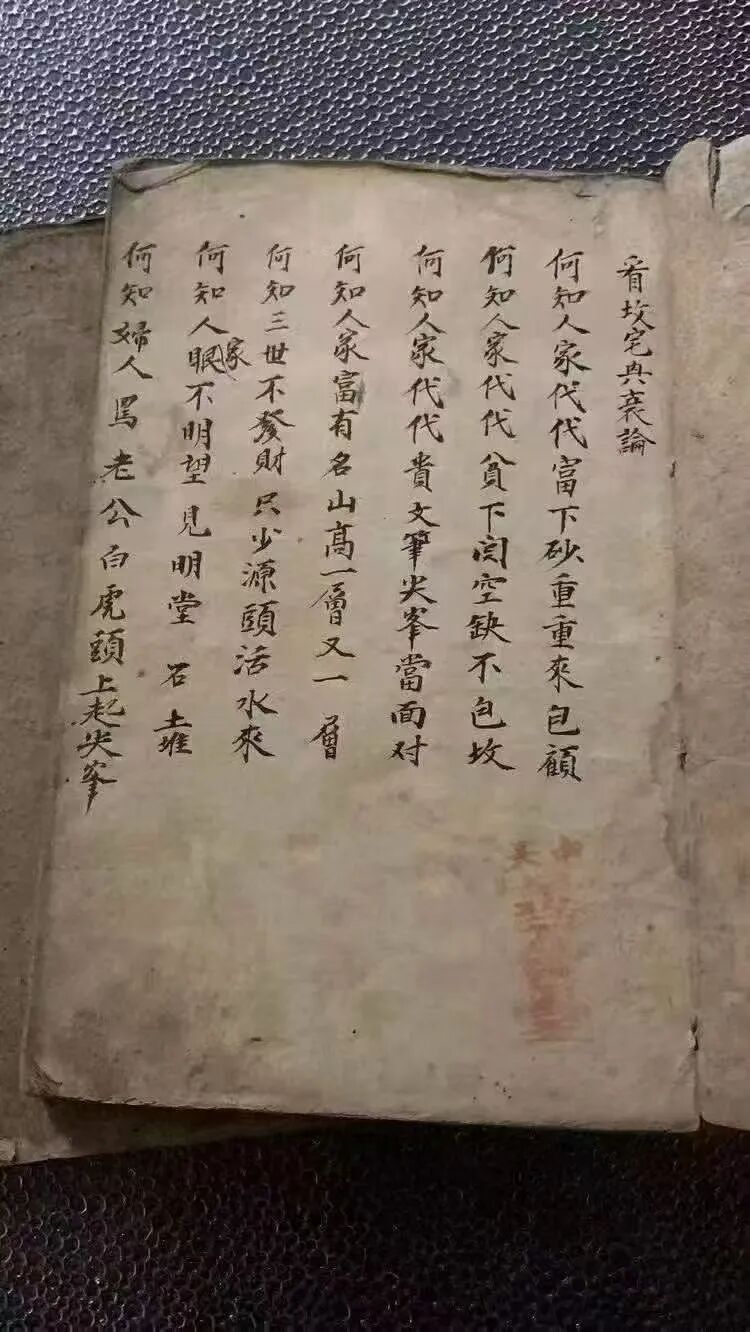 看坆宅典衰論
何知人家代代富下砂重重來包顧
何知人家代代貧下関空缺不包坆
何知人家代代貴文筆尖峯當面对
何知人家富有名山高一層又一層
何知三世不發財只少源頭活水來
何知人家眼不明望見明堂石土堆
何知婦人罵老公白虎頭上起尖峯